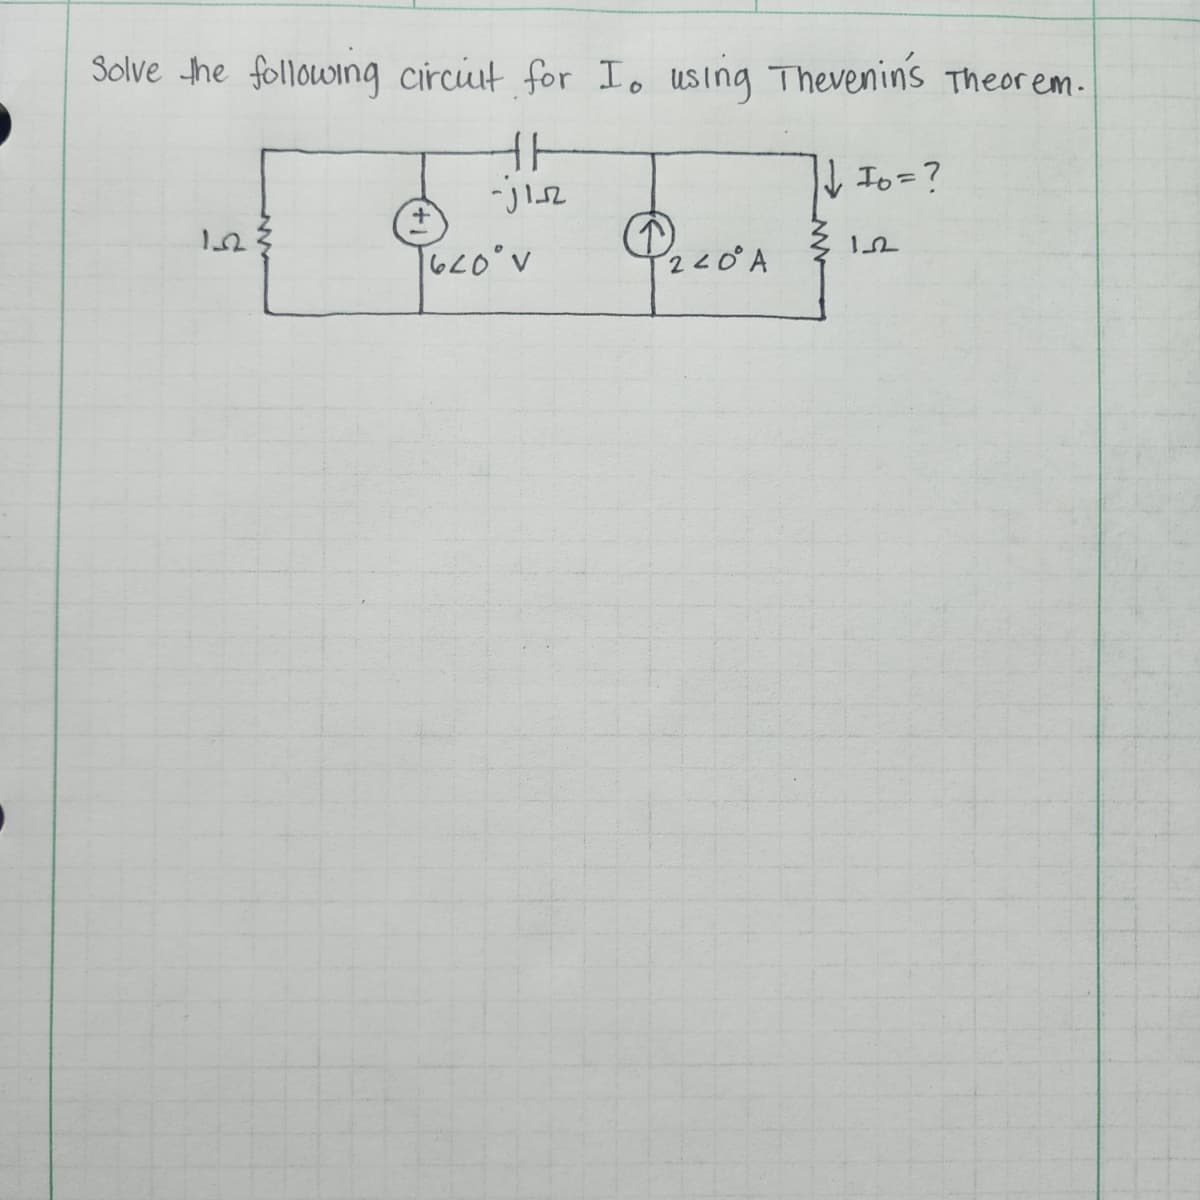 Solve the following circuit for I₀ using Thevenin's Theorem.
-j1Ω
↓ I₀ = ?
1Ω
+
−
6∠0° V
↑
2∠0° A
1Ω